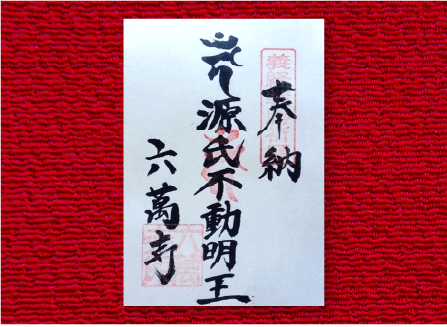 奉納
源氏不動明王
六萬寺